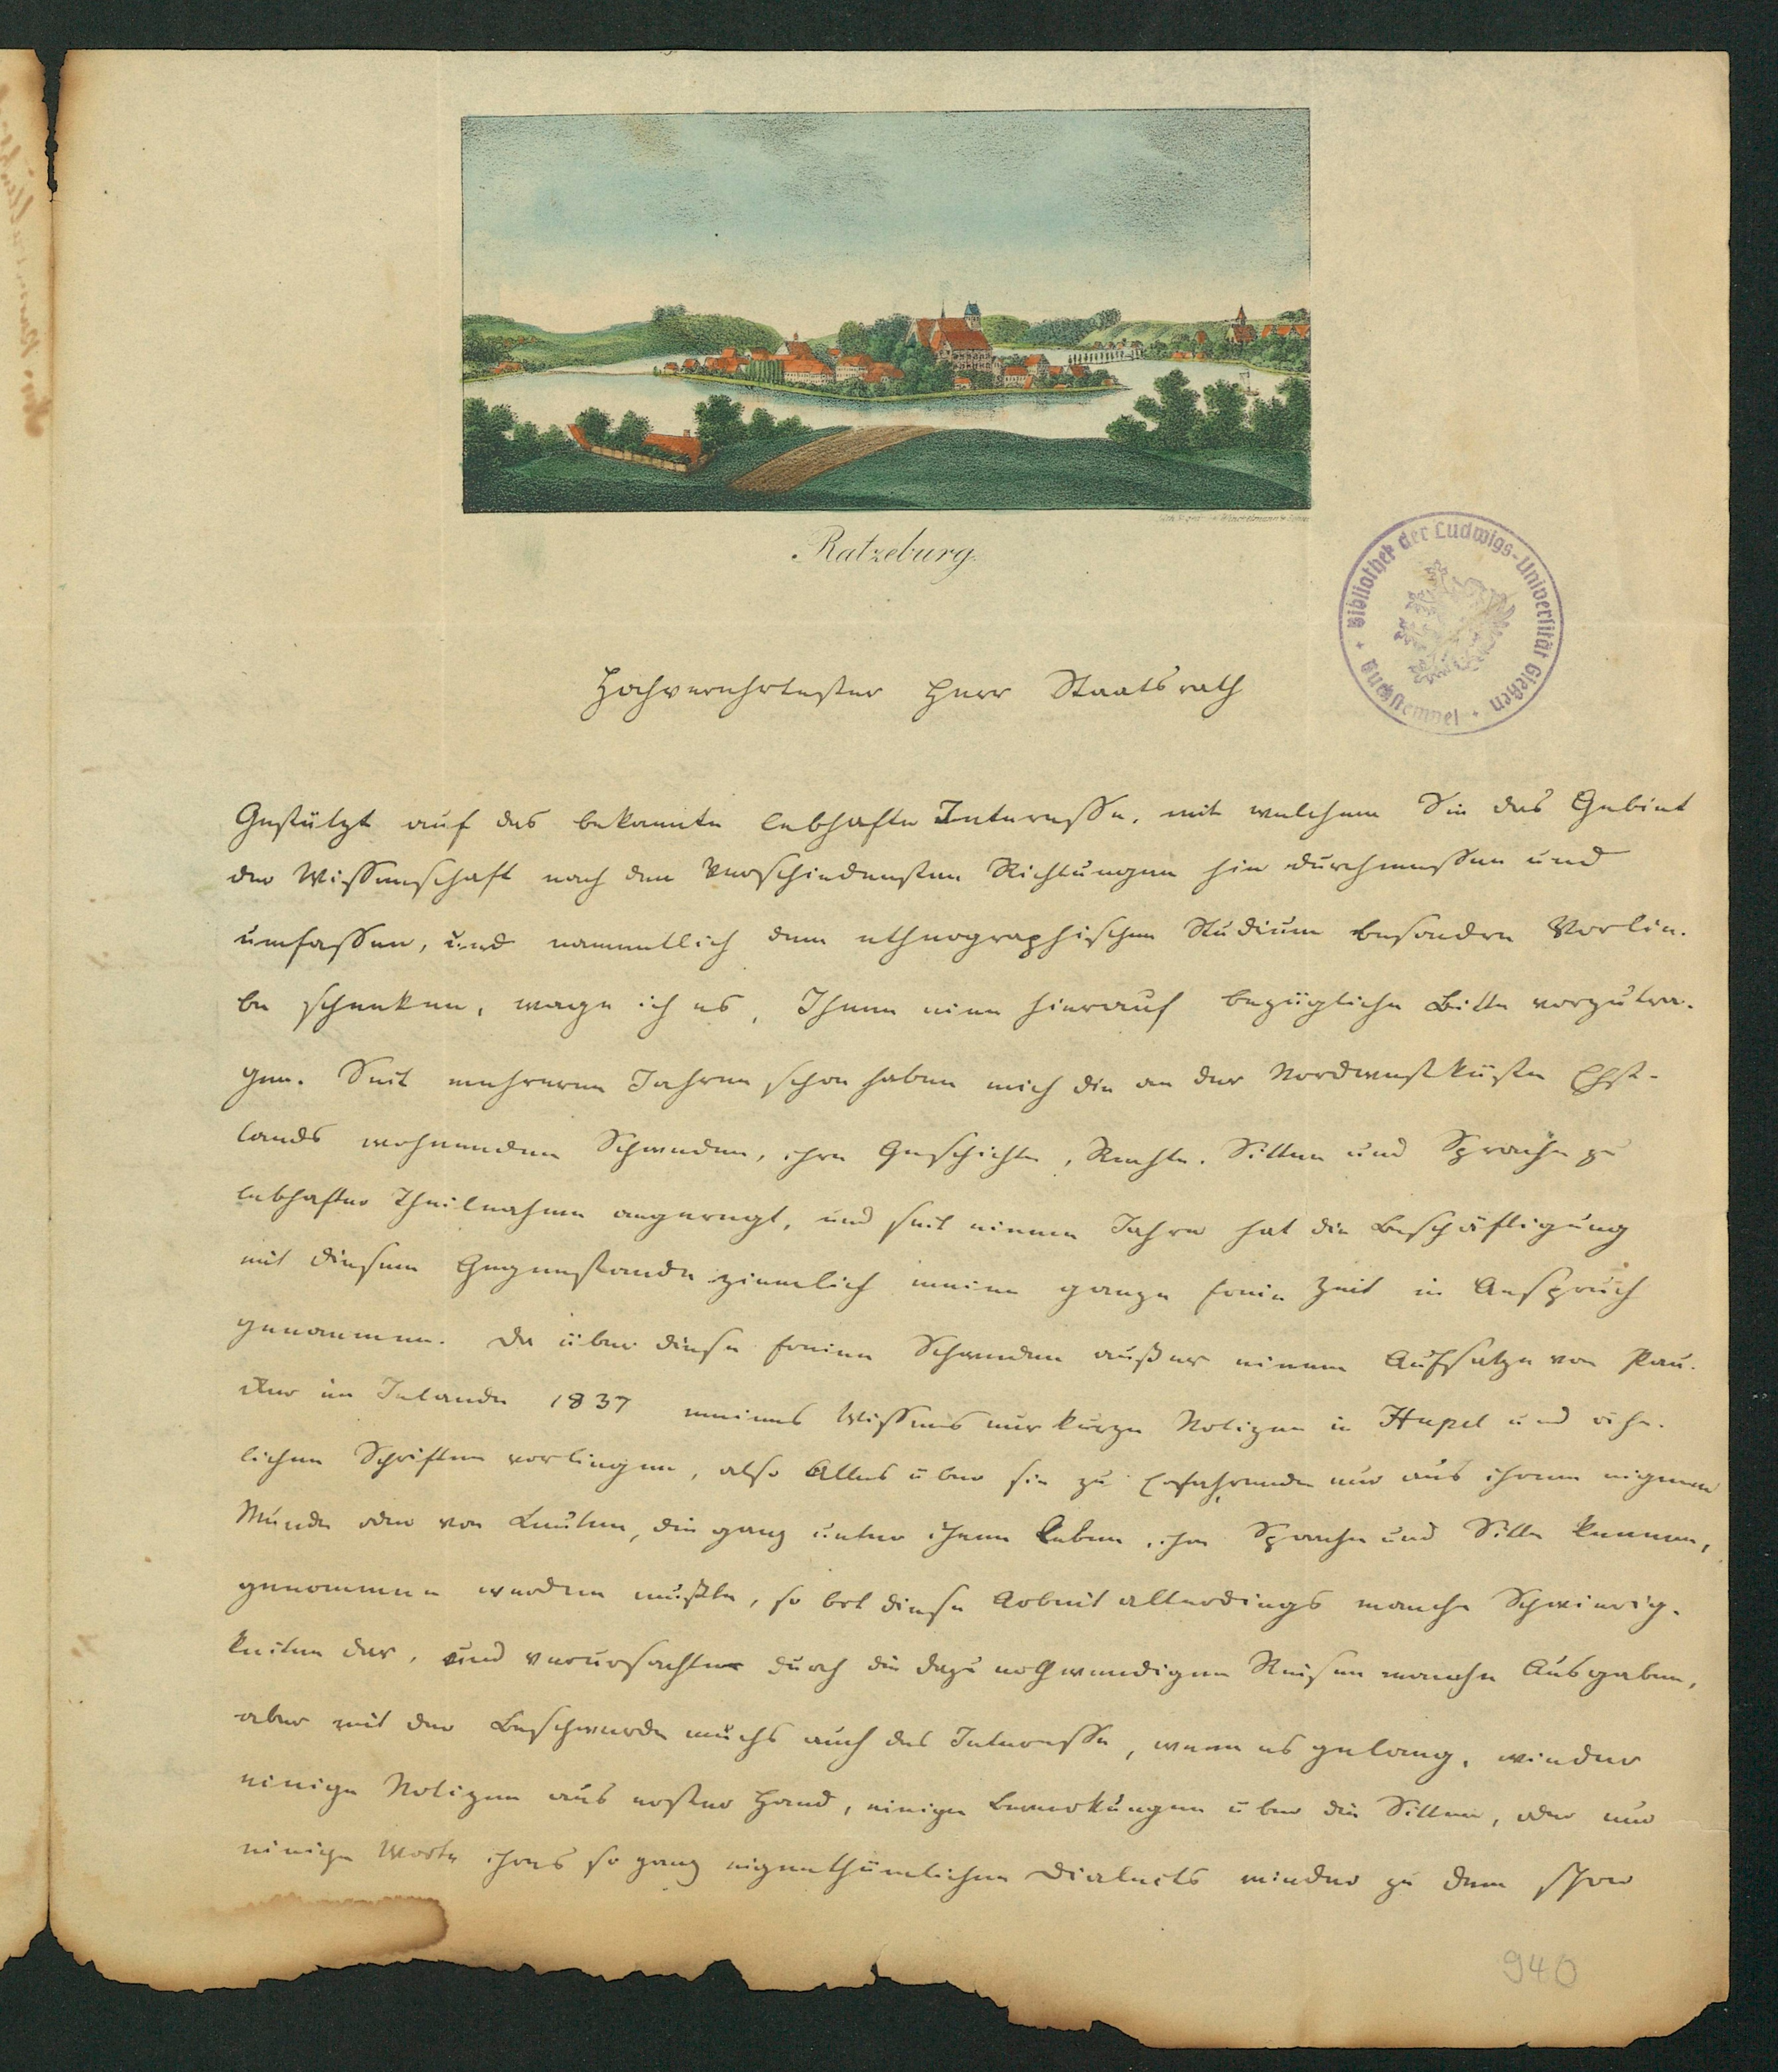 Ratzeburg.
Bibliothek der Ludwigs-Universität Gießen
Buchstempel
Hochverehrtester Herr Staatsrath
Gestützt auf das bekannte lebhafte Interesse, mit welchem Sie das Gebiet
der Wissenschaft nach den verschiedensten Richtungen hin durchmessen und
umfassen, und namentlich dem ethnographischen Studium besondre Vorlie-
be schenken, wage ich es, Ihnen eine hierauf bezügliche Bitte vorzutra-
gen. Seit mehreren Jahren schon haben mich die an der Nordwestküste Ehst-
lands wohnenden Schweden, ihre Geschichte, Rechte, Sitten und Sprache zu
lebhafter Theilnahme angeregt, und seit einem Jahre hat die Beschäftigung
mit diesem Gegenstande ziemlich meine ganze freie Zeit in Anspruch
genommen. Da über diese freien Schweden außer einem Aufsatze von Pau-
cker im Inlande 1837 meines Wissens nur kurze Notizen in Hupel und ähn-
lichen Schriften vorliegen, also Alles über sie zu Erfahrende nur aus ihrem eigenen
Munde oder von Leuten, die ganz unter ihnen leben, ihre Sprache und Sitte kennen,
genommen werden mußte, so bot diese Arbeit allerdings manche Schwierig-
keiten dar, und verursachte durch die dazu nothwendigen Reisen manche Ausgaben,
aber mit der Beschwerde wuchs auch das Interesse, wenn es gelang, wieder
einige Notizen aus erster Hand, einige Bemerkungen über die Sitten, oder nur
einige Worte ihres so ganz eigenthümlichen Dialects wieder zu dem schon
940